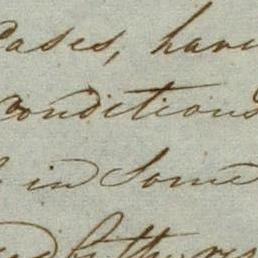 Cases, havi
conditions
in some
by the